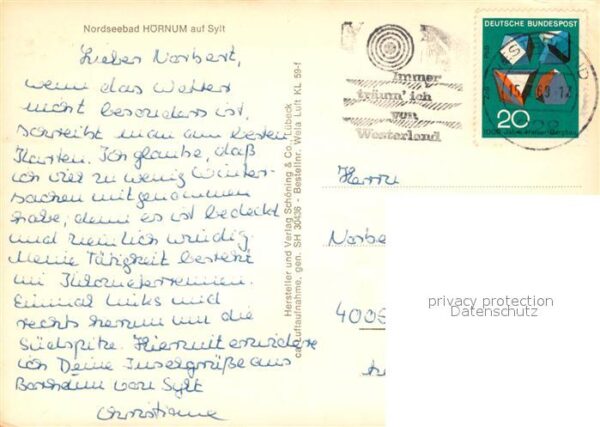 Nordseebad HÖRNUM auf Sylt
Lieber Norbert,
wenn das Wetter
nicht besonders ist,
schreibt man am besten
Karten. Ich glaube, daß
ich viel zu wenig Winter-
sachen mitgenommen
habe, denn es ist bedeckt
und ziemlich windig.
Meine Tätigkeit besteht
im Kilometerrennen.
Einmal links und
rechts herum um die
Südspitze. Hiermit erwidere
ich Deine Inselgrüße aus
Borkum von Sylt
Christiane
Hersteller und Verlag Schöning & Co., Lübeck
Luftaufnahme, gen. SH 30436 - Bestellnr. Welä Luft KL 59-f
Immer
träum' ich
von
Westerland
DEUTSCHE BUNDESPOST
20
1000 Jahre Harzer Bergbau
Herrn
Norbe
400
privacy protection
Datenschutz